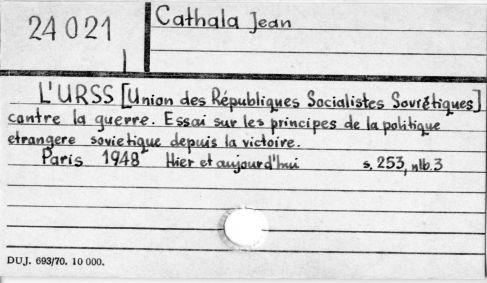 24021
Cathala Jean
L'URSS [Union des Républiques Socialistes Sovrétiques]
contre la guerre. Essai sur les principes de la politique
etrangere sovietique depuis la victoire.
Paris 1948 Hier et aujourd'hui s. 253, nlb. 3
DUJ. 693/70. 10 000.